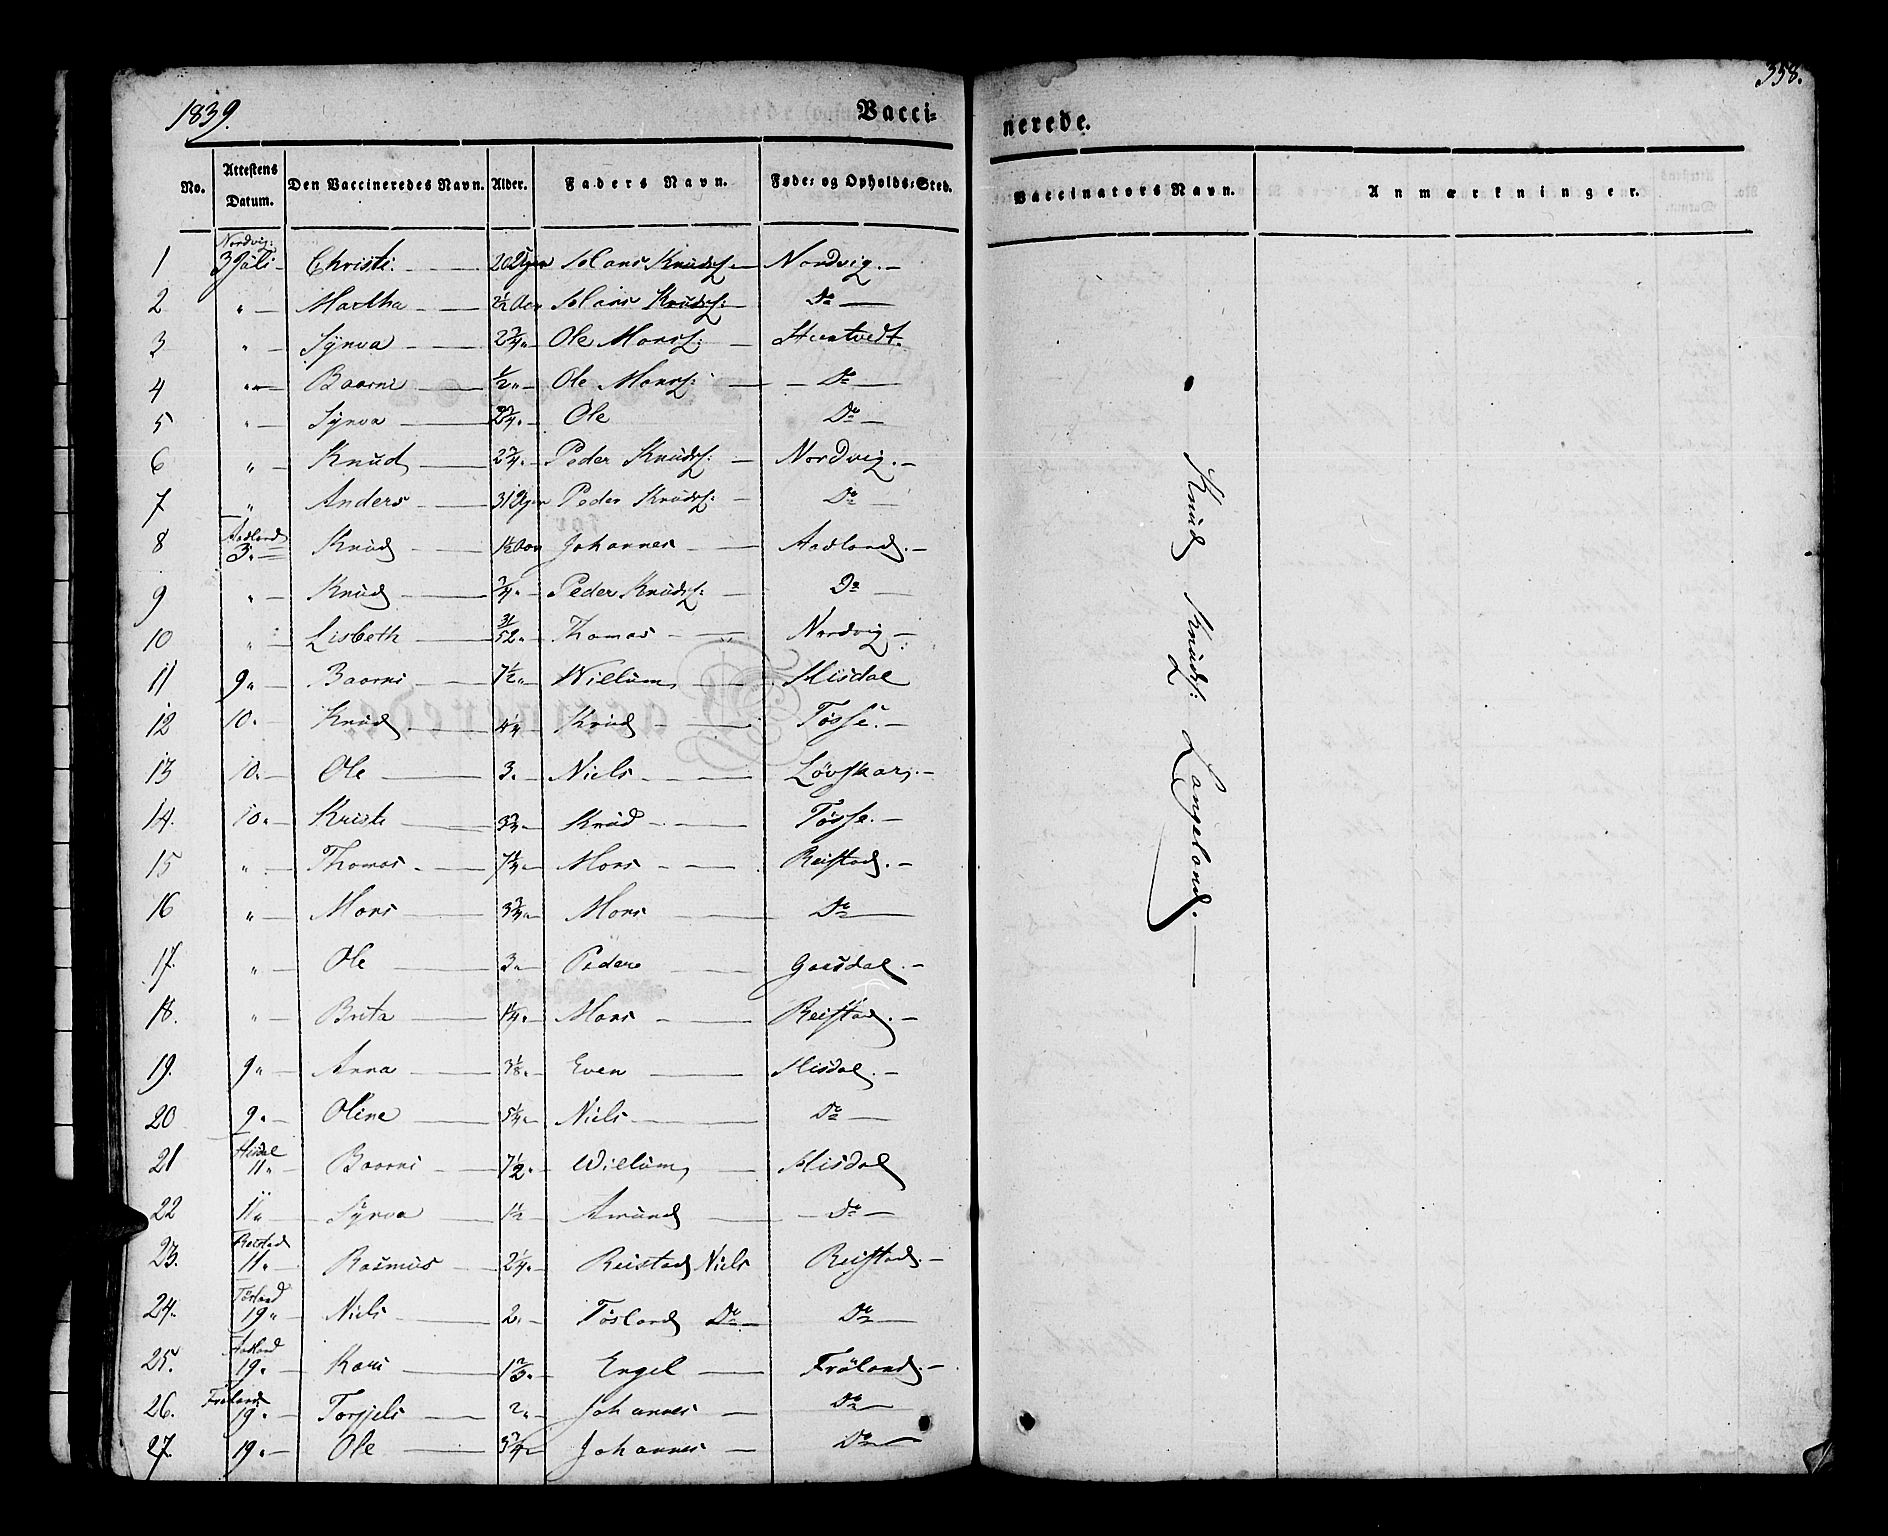 358.
1839. Vaccinerede.
No. Attestens Datum. Den Vaccineredes Navn. Alder. Faders Navn. Føde- og Opholds-Sted. Vaccinators Navn. Anmærkninger.
Nordvig:
1 3 Juli - Christi. 20 Uger Knuds: Nordvig.
2 " Martha 2½ Aar Knuds: Do
3 " Synva 2¾ " Ole Monss:
4 " Baarni ½ " Ole Monss: Do
5 " Synva Ole Do
6 " Knud 2¾ " Peder Knuds: Nordvig.
7 " Anders 31 Uger Peder Knuds: Do
Aadland
8 3. Knud 1½ Aar Johannes Aadland.
9 " Knud ¾ " Peder Knuds: Do
10 " Lisbeth 31/52 " Thomas Nordvig
11 9 " Baarni 7½ " Willum Hisdal
12 10. Knud Knud Tøsse.
13 10. Ole 3 " Niels Løvskar.
14. 10. Kristi 3¾ Knud Tøsse.
15 " Thomas 7¼ Mons Reistad.
16 " Mons 3¾ Mons Do
17. " Ole 3 " Peder
18. " Brita 1¼ " Mons Reistad.
19. 9 " Anna 3⅛ " Even Hisdal.
20 9. Oline 5¼ " Niels Do
Hisdal
21 11 " Baarni 7½ " Willum Hisdal
22 11 " Synva 1½ Amund Do
Reistad
23. 11. Rasmus 2¼ " Reistad Niels Reistad.
Tøsland
24. 19 " Niels 2 " Tøsland Do Do
Aasland
25. 19. Kari 1⅔ " Engel Frøland.
Frøland
26. 19. Torgjels 2 " Johannes Do
27. 19. Ole 3¾ Johannes Do
Knud Knuds: Langeland.